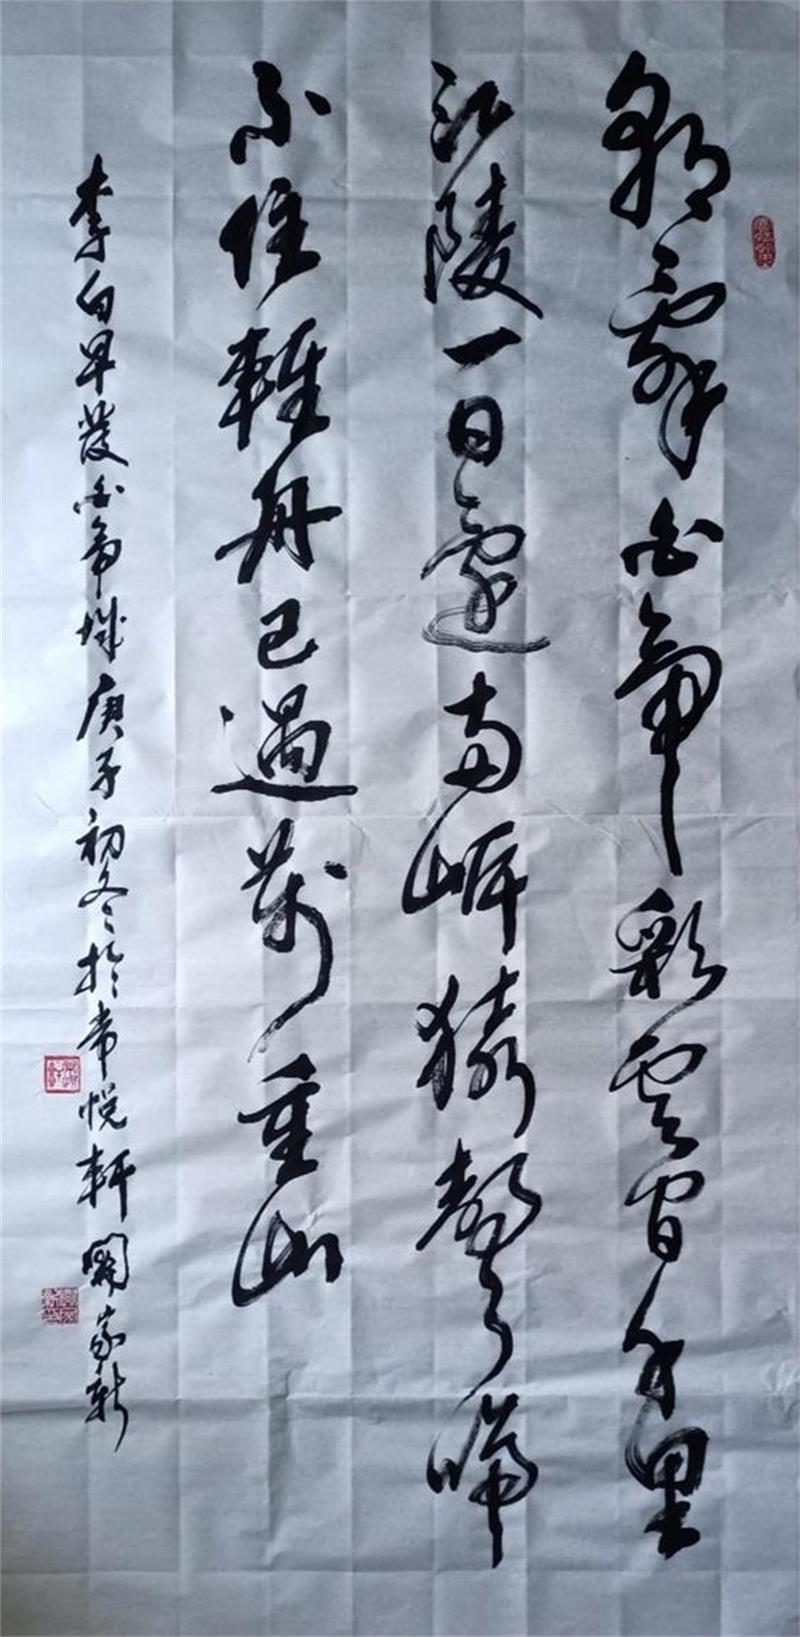 朝辭白帝彩雲間千里
江陵一日還兩岸猿聲啼
不住輕舟已過萬重山
李白早發白帝城庚子初冬於常悅軒關家新